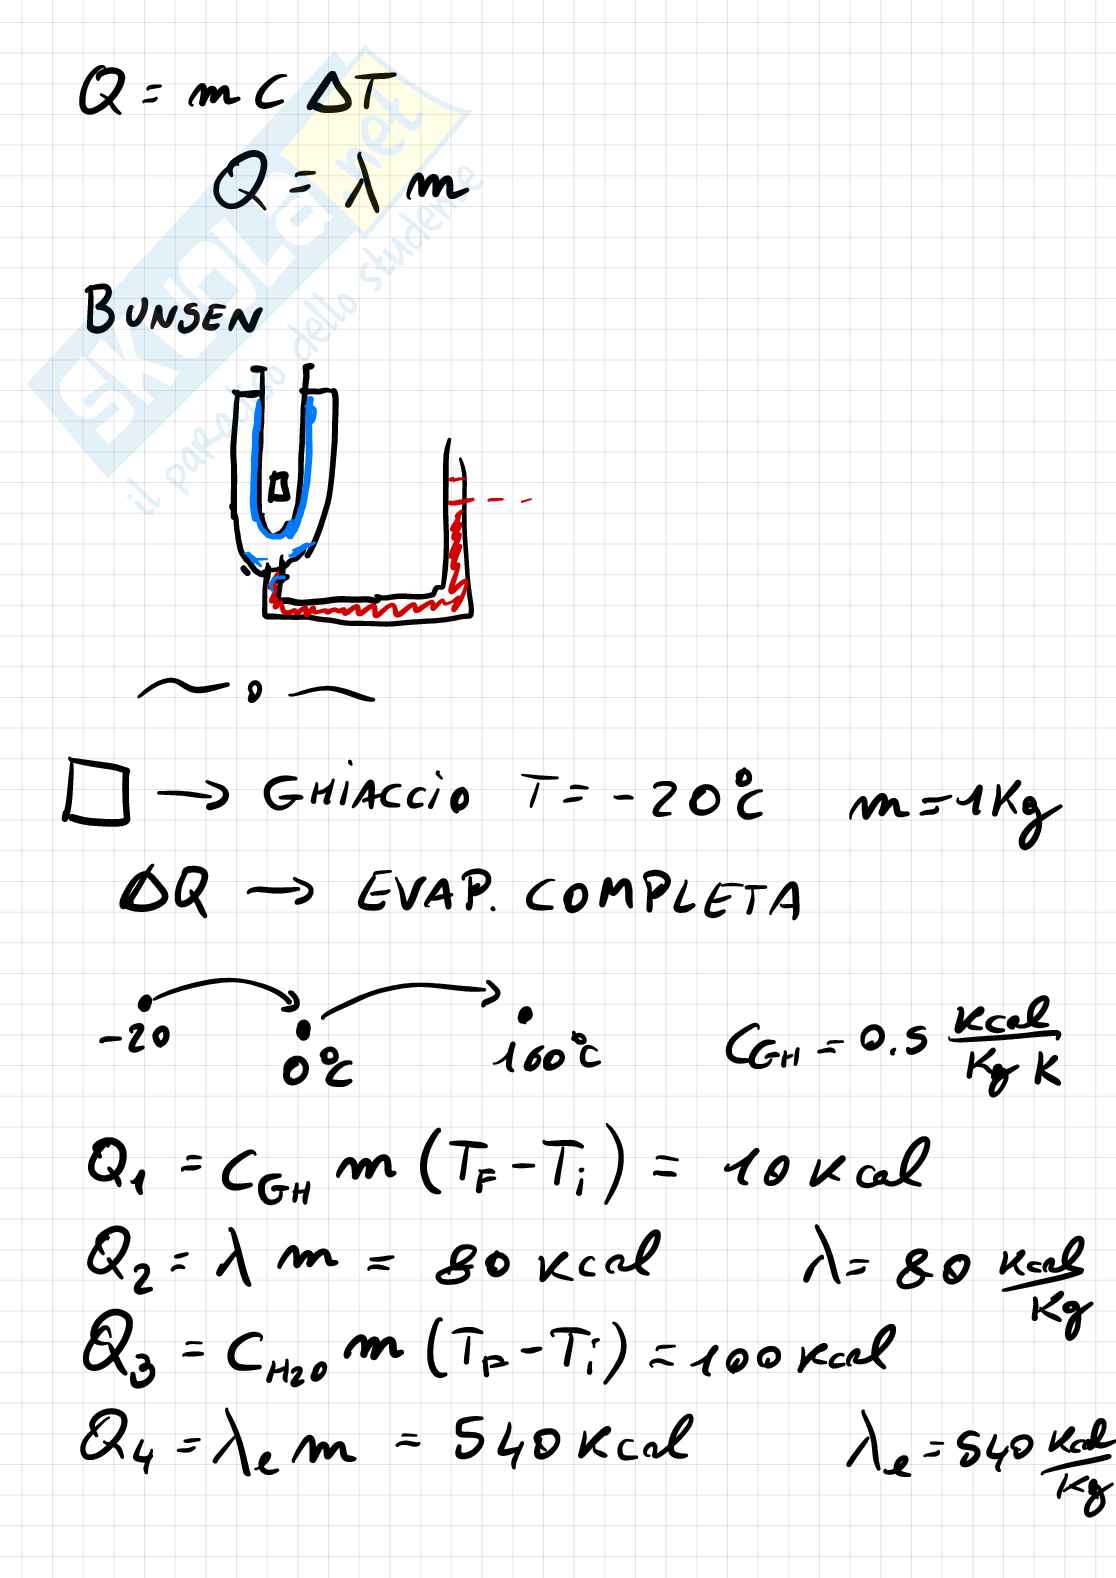 Q = m C ΔT
Q = λ m
SKUOLA.net
il paradiso dello studente
BUNSEN
→ GHIACCIO T = -20°C m = 1Kg
ΔQ → EVAP. COMPLETA
-20 0°C 100°C C_GH = 0.5 Kcal/Kg K
Q₁ = C_GH m (T_F - T_i) = 10 Kcal
Q₂ = λ m = 80 Kcal λ = 80 Kcal/Kg
Q₃ = C_H2O m (T_F - T_i) = 100 Kcal
Q₄ = λ_e m = 540 Kcal λ_e = 540 Kcal/Kg